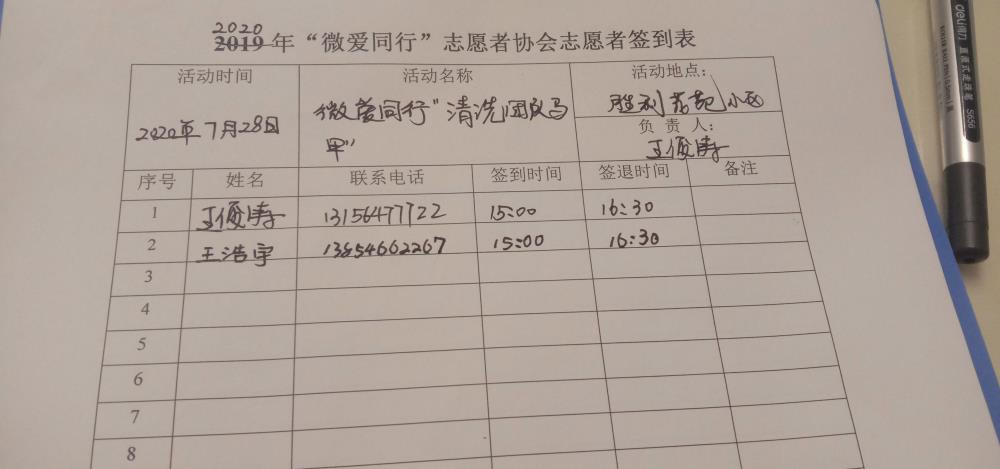 2020
2019年“微爱同行”志愿者协会志愿者签到表
活动时间 活动名称 活动地点:
2020年7月28日 微爱同行"清洗团队马甲" 胜利花苑小区
负责人:
王俊涛
序号 姓名 联系电话 签到时间 签退时间 备注
1 王俊涛 13156477722 15:00 16:30
2 王浩宇 13854662267 15:00 16:30
3
4
5
6
7
8
deli 得力 直液式走珠笔 S656